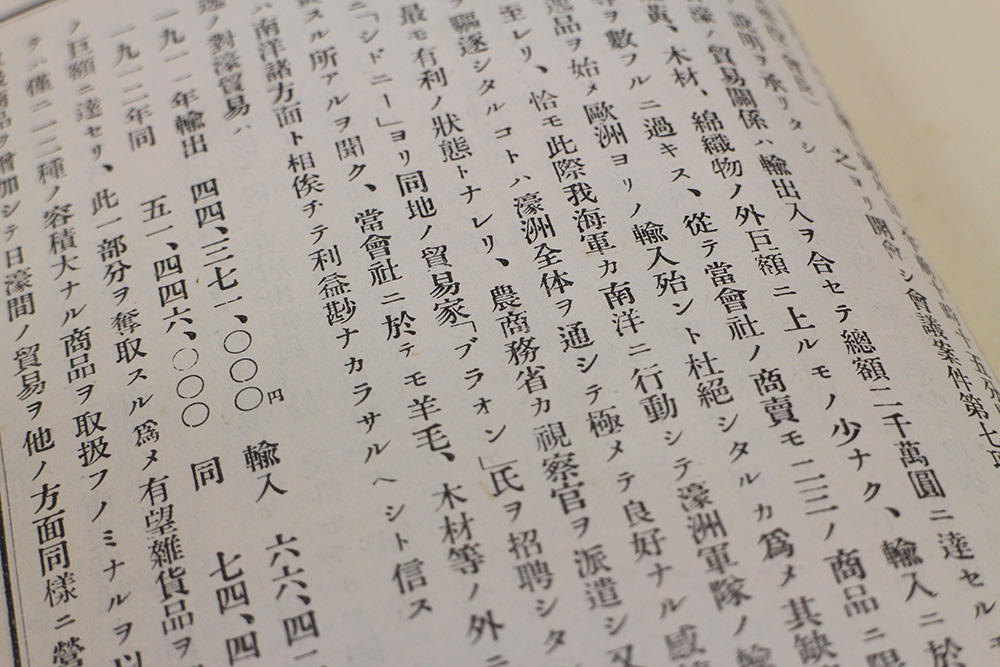 之ヨリ開會シ會議案件第七項
説明ヲ承リタシ
貿易關係ハ輸出入ヲ合セテ總額二千萬圓ニ達セル
木材、綿織物ノ外巨額ニ上ルモノ少ナク、輸入ニ於
ヲ數フルニ過キス、從テ當會社ノ商賣モ二三ノ商品ニ限
品ヲ始メ歐洲ヨリノ輸入殆ント杜絕シタルカ爲メ其缺
至レリ、恰モ此際我海軍カ南洋ニ行動シテ濠洲軍隊ノ輸
ヲ驅逐シタルコトハ濠洲全体ヲ通シテ極メテ良好ナル感
最モ有利ノ狀態トナレリ、農商務省カ視察官ヲ派遣シ又
ニ「シドニー」ヨリ同地ノ貿易家「ブラオン」氏ヲ招聘シタ
スル所アルヲ聞ク、當會社ニ於テモ羊毛、木材等ノ外ニ
ハ南洋諸方面ト相俟チテ利益尠ナカラサルヘシト信ス
ノ對濠貿易ハ
一九一一年輸出 四四、三七一、〇〇〇円 輸入 六六、四一
一九一二年同 五一、四四六、〇〇〇 同 七四、四
ノ巨額ニ達セリ、此一部分ヲ奪取スル爲メ有望雜貨品ヲ
ハ僅ニ一二種ノ容積大ナル商品ヲ取扱フノミナルヲ以
商品ヲ增加シテ日濠間ノ貿易ヲ他ノ方面同樣ニ營